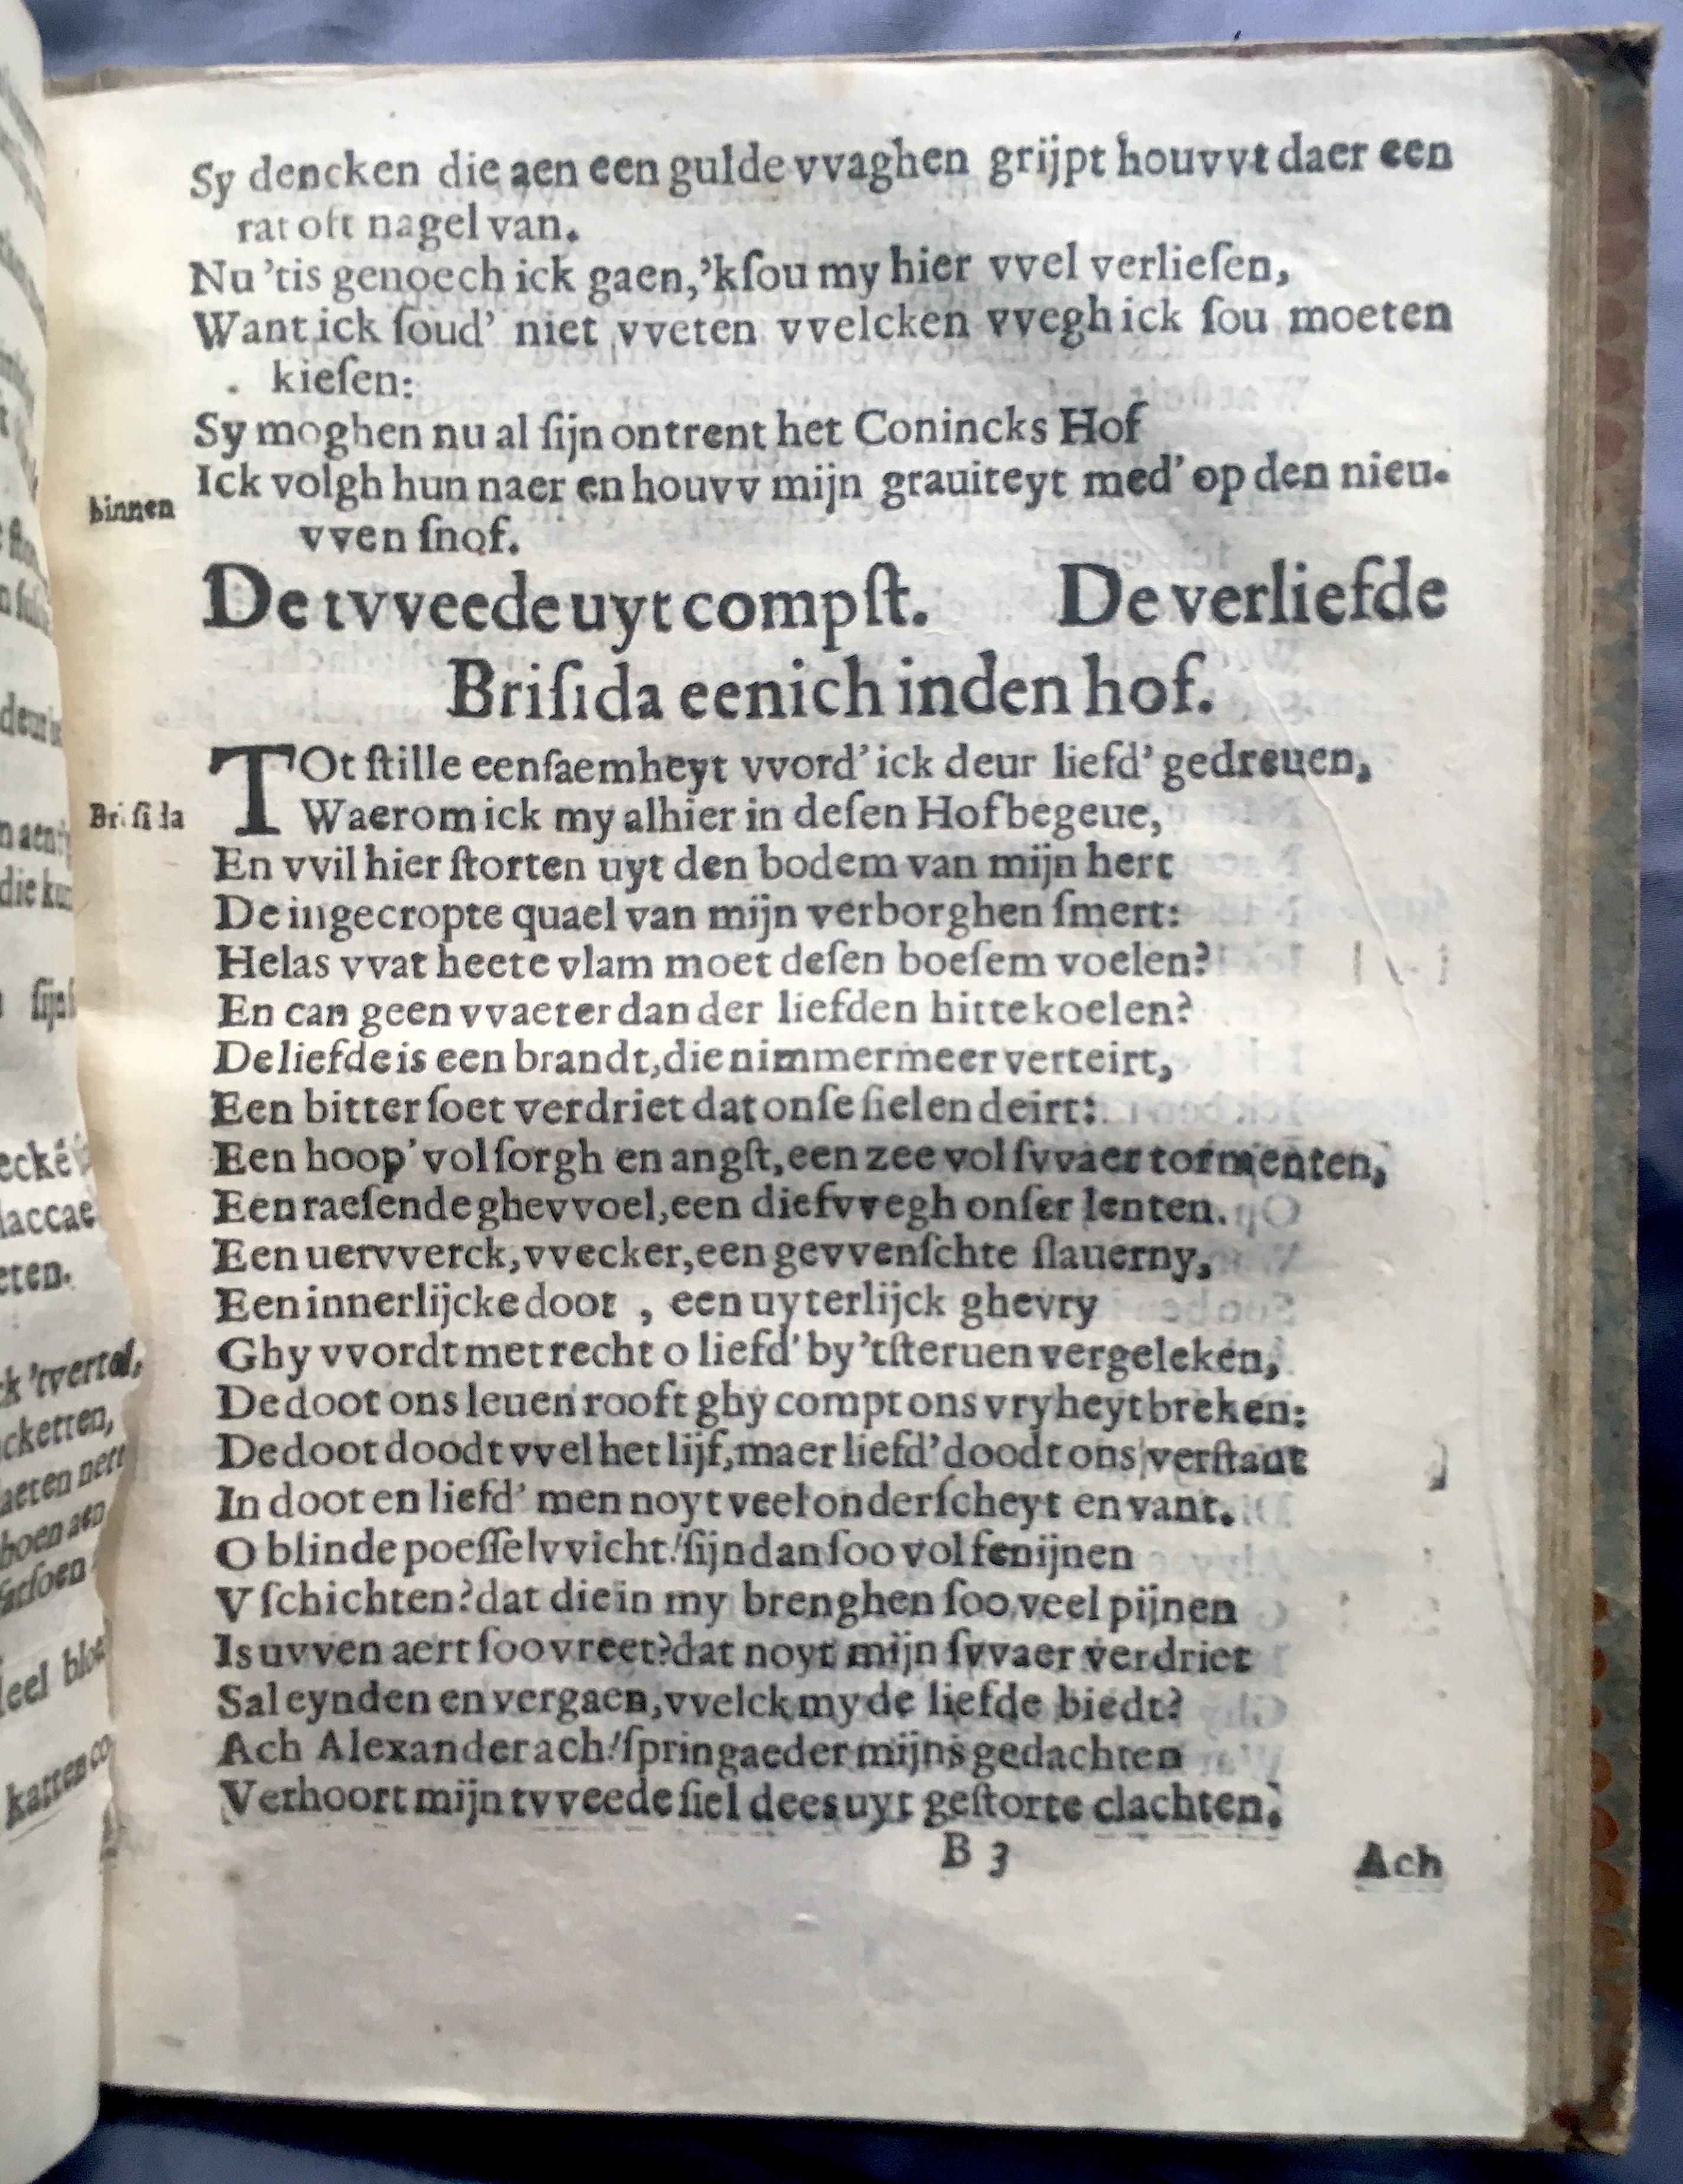 Sy dencken die aen een gulde vvaghen grijpt houvvt daer een
rat oft nagel van.
Nu ’tis genoech ick gaen,’kſou my hier vvel verlieſen,
Want ick ſoud’ niet vveten vvelcken vvegh ick ſou moeten
kieſen:
Sy moghen nu al ſijn ontrent het Conincks Hof
Ick volgh hun naer en houvv mijn grauiteyt med’ op den nieu-
binnen
vven ſnof.
De tvveede uyt compſt. De verliefde
Briſida eenich inden hof.
TOt ſtille eenſaemheyt vvord’ ick deur liefd’ gedreuen,
Briſida
Waerom ick my alhier in deſen Hof begeue,
En vvil hier ſtorten uyt den bodem van mijn hert
De ingecropte quael van mijn verborghen ſmert:
Helas vvat heete vlam moet deſen boeſem voelen?
En can geen vvaeter dan der liefden hitte koelen?
De liefde is een brandt, die nimmermeer verteirt,
Een bitter ſoet verdriet dat onſe ſielen deirt:
Een hoop’ vol ſorgh en angſt, een zee vol ſvvaer tormenten,
Een raeſende ghevvoel, een diefvvegh onſer lenten.
Een uervverck, vvecker, een gevvenſchte ſlauerny,
Een innerlijcke doot , een uyterlijck ghevry
Ghy vvordt met recht o liefd’ by ’tſteruen vergeleken,
De doot ons leuen rooft ghy compt ons vryheyt breken:
De doot doodt vvel het lijf, maer liefd’ doodt ons verſtant
In doot en liefd’ men noyt veel onderſcheyt en vant.
O blinde poeſſelvvicht! ſijn dan ſoo vol fenijnen
V ſchichten? dat die in my brenghen ſoo veel pijnen
Is uvven aert ſoo vreet? dat noyt mijn ſvvaer verdriet
Sal eynden en vergaen, vvelck my de liefde biedt?
Ach Alexander ach! ſpringader mijns gedachten
Verhoort mijn tvveede ſiel dees uyt geſtorte clachten.
B 3
Ach